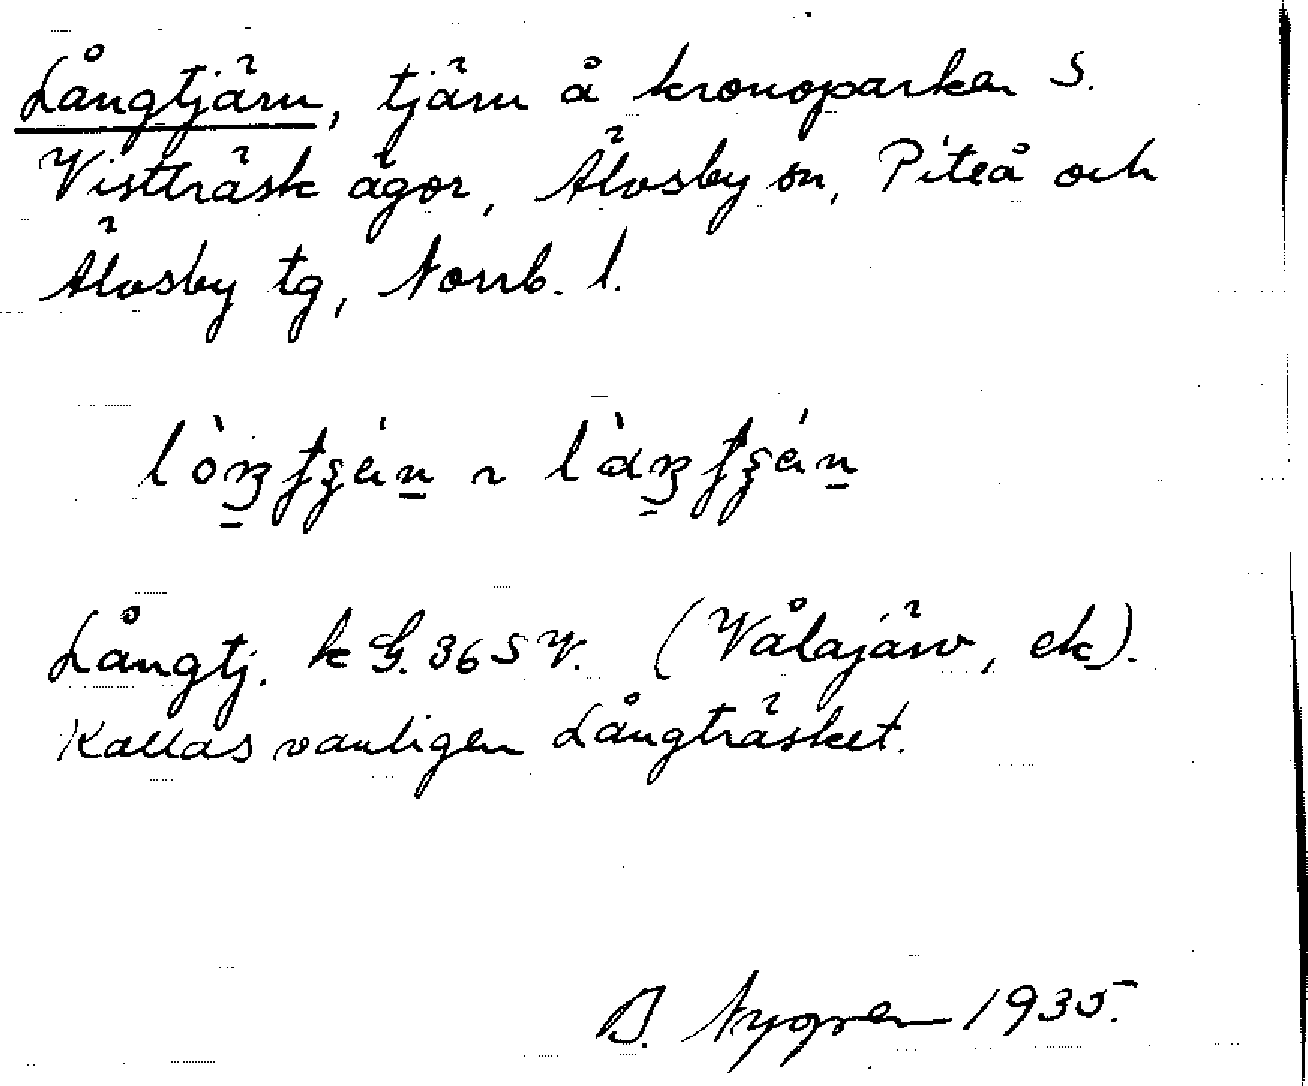 Långtjärn, tjärn å kronoparken S.
Vistträsk ägor, Älvsby sn, Piteå och
Älvsby tg, Norrb. l.
Långtj. k G. 36 SV. (Vålajärv, ek).
Kallas vanligen Långträsket.
B. Nygren 1935.